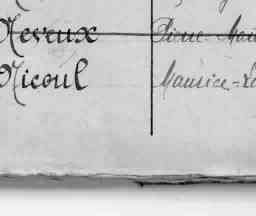 Neveux Pierre-Mari
Nicoul Maurice-Lo